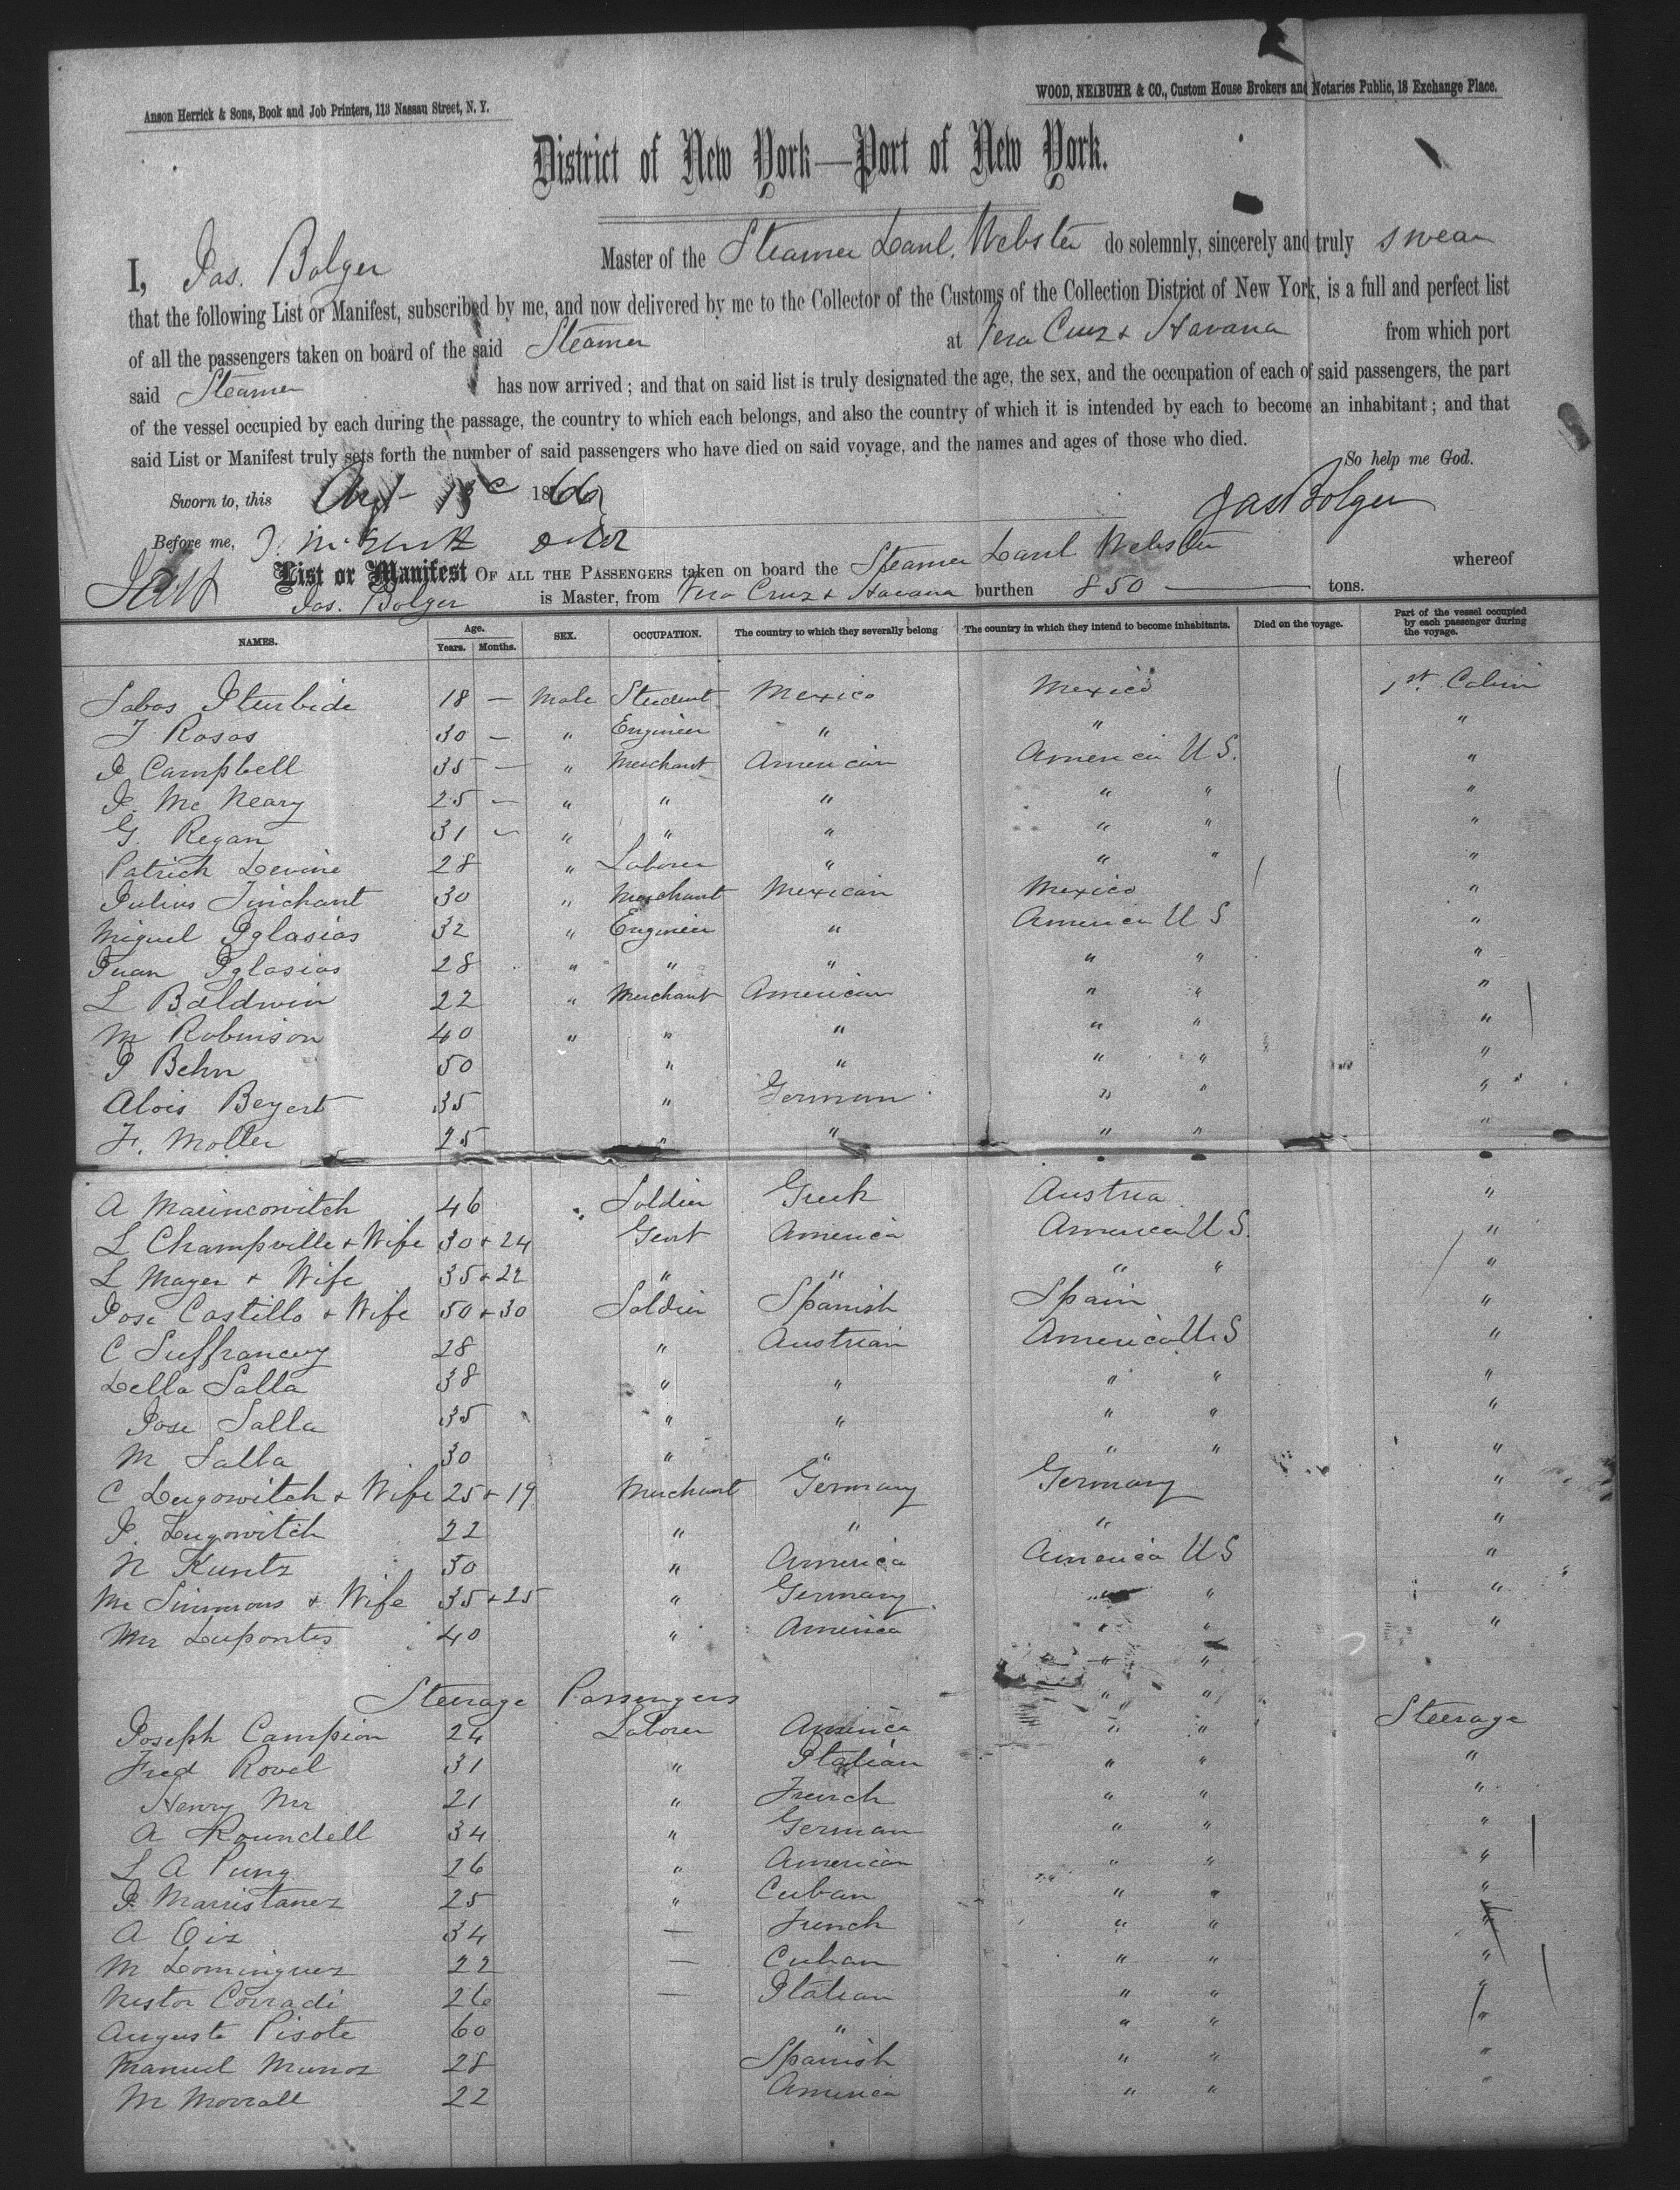 Anson Herrick & Sons, Book and Job Printers, 113 Nassau Street, N. Y.
WOOD, NEIBUHR & CO., Custom House Brokers and Notaries Public, 18 Exchange Place.
District of New York—Port of New York.
I, Jas. Bolger Master of the Steamer Danl. Webster do solemnly, sincerely and truly swear
that the following List or Manifest, subscribed by me, and now delivered by me to the Collector of the Customs of the Collection District of New York, is a full and perfect list
of all the passengers taken on board of the said Steamer at Vera Cruz & Havana from which port
said Steamer has now arrived; and that on said list is truly designated the age, the sex, and the occupation of each of said passengers, the part
of the vessel occupied by each during the passage, the country to which each belongs, and also the country of which it is intended by each to become an inhabitant; and that
said List or Manifest truly sets forth the number of said passengers who have died on said voyage, and the names and ages of those who died.
So help me God.
Sworn to, this 1866
Jas Bolger
Before me,
List or Manifest OF ALL THE PASSENGERS taken on board the Steamer Danl Webster whereof
Jas. Bolger is Master, from Vera Cruz & Havana burthen 850 tons.
NAMES. Age. Years. Months. SEX. OCCUPATION. The country to which they severally belong The country in which they intend to become inhabitants. Died on the voyage. Part of the vessel occupied by each passenger during the voyage.
Sabas Iturbide 18 — Male Student Mexico Mexico 1st Cabin
J Rosas 30 — " Engineer " " "
J Campbell 35 — " Merchant American America U S. "
J. Mc Neary 25 — " " " " " "
G. Regan 31 — " " " " " "
Patrick Devine 28 " Laborer " " " "
Julius Tinchant 30 " Merchant Mexican Mexico "
Miguel Iglasias 32 " Engineer " America U S "
Juan Iglasias 28 " " " " " "
L Baldwin 22 " Merchant American " " "
M Robinson 40 " " " " " "
J Behn 50 " " " " "
Alois Beyert 35 " German " " "
F. Moller 25 " " " " "
A Marincowitch 46 Soldier Greek Austria "
L Champville & Wife 30 & 24 Gent America America U S. "
L Mayer & Wife 35 & 22 " " " " "
Jose Castillo & Wife 50 & 30 Soldier Spanish Spain "
C Suffrancuy 28 " Austrian America U S "
Della Salla 38 " " " " "
Jose Salla 35 " " " " "
M Salla 30 " " " " "
C Lugowitch & Wife 25 & 19 Merchant Germany Germany "
J. Lugowitch 22 " " " "
N Kuntz 30 " America America U S "
Mr Simmons & Wife 35 & 25 " Germany " " "
Mr Lupontes 40 " America " " "
" "
Steerage Passengers " "
Joseph Campion 24 Laborer America " " Steerage
Fred Rovel 31 " Italian " " "
Henry Mr 21 " French " " "
A Roundell 34 " German " " "
L A Pung 26 " American " " "
J. Marristanez 25 " Cuban " " "
A 34 — French " " "
M Dominguez 22 — Cuban " " "
Nestor Corradi 26 — Italian " " "
Auguste Pisote 60 " " " "
Manuel Munoz 28 Spanish " " "
M Morrall 22 America " " "